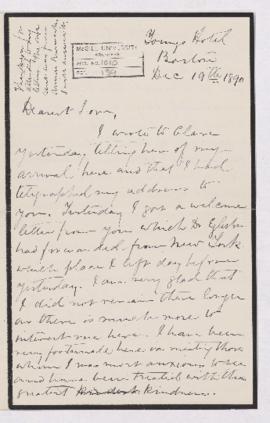 McGILL UNIVERSITY
ARCHIVES
ACC. NO. 1010
REF.
Youngs Hotel
Boston
Dec 19th 1890
Dearest Lora,
I wrote to Clare
yesterday telling her of my
arrival here and that I had
telegraphed my address to
you. Yesterday I got a welcome
letter from you which Dr
had forwarded from New York
which place I left day before
yesterday. I am very glad that
I did not remain there longer
as there is much more to
interest me here. I have been
very fortunate here in meeting those
whom I was most anxious to see
and have been treated with the
greatest kindness.